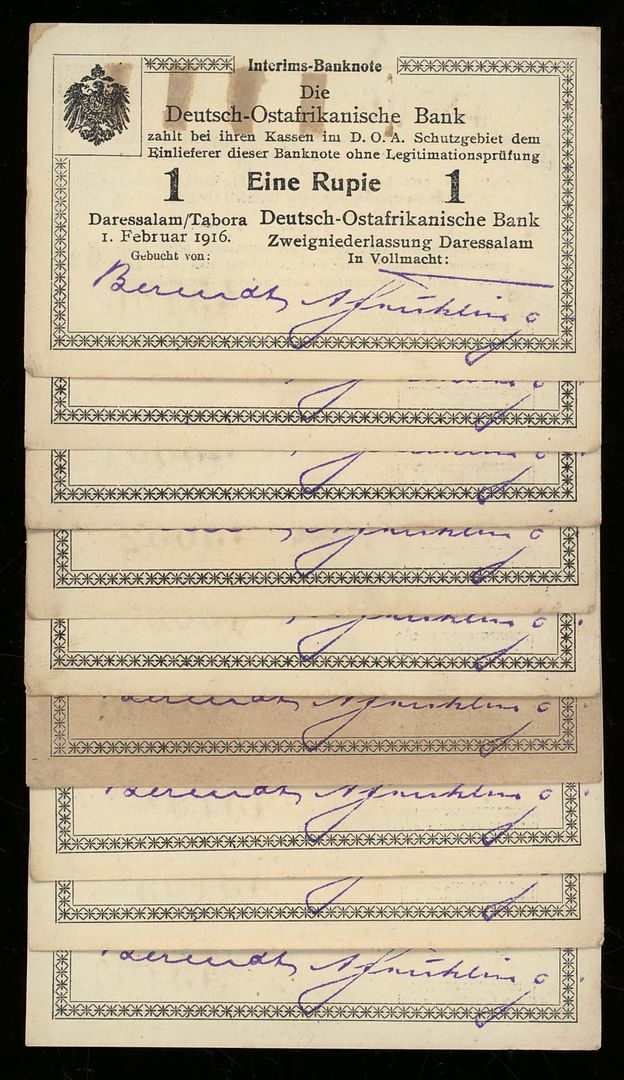 Interims-Banknote
Die
Deutsch-Ostafrikanische Bank
zahlt bei ihren Kassen im D. O. A. Schutzgebiet dem
Einlieferer dieser Banknote ohne Legitimationsprüfung
1 Eine Rupie 1
Daressalam/Tabora Deutsch-Ostafrikanische Bank
1. Februar 1916. Zweigniederlassung Daressalam
Gebucht von: In Vollmacht:
Berendt
Berendt
Berendt
Berendt